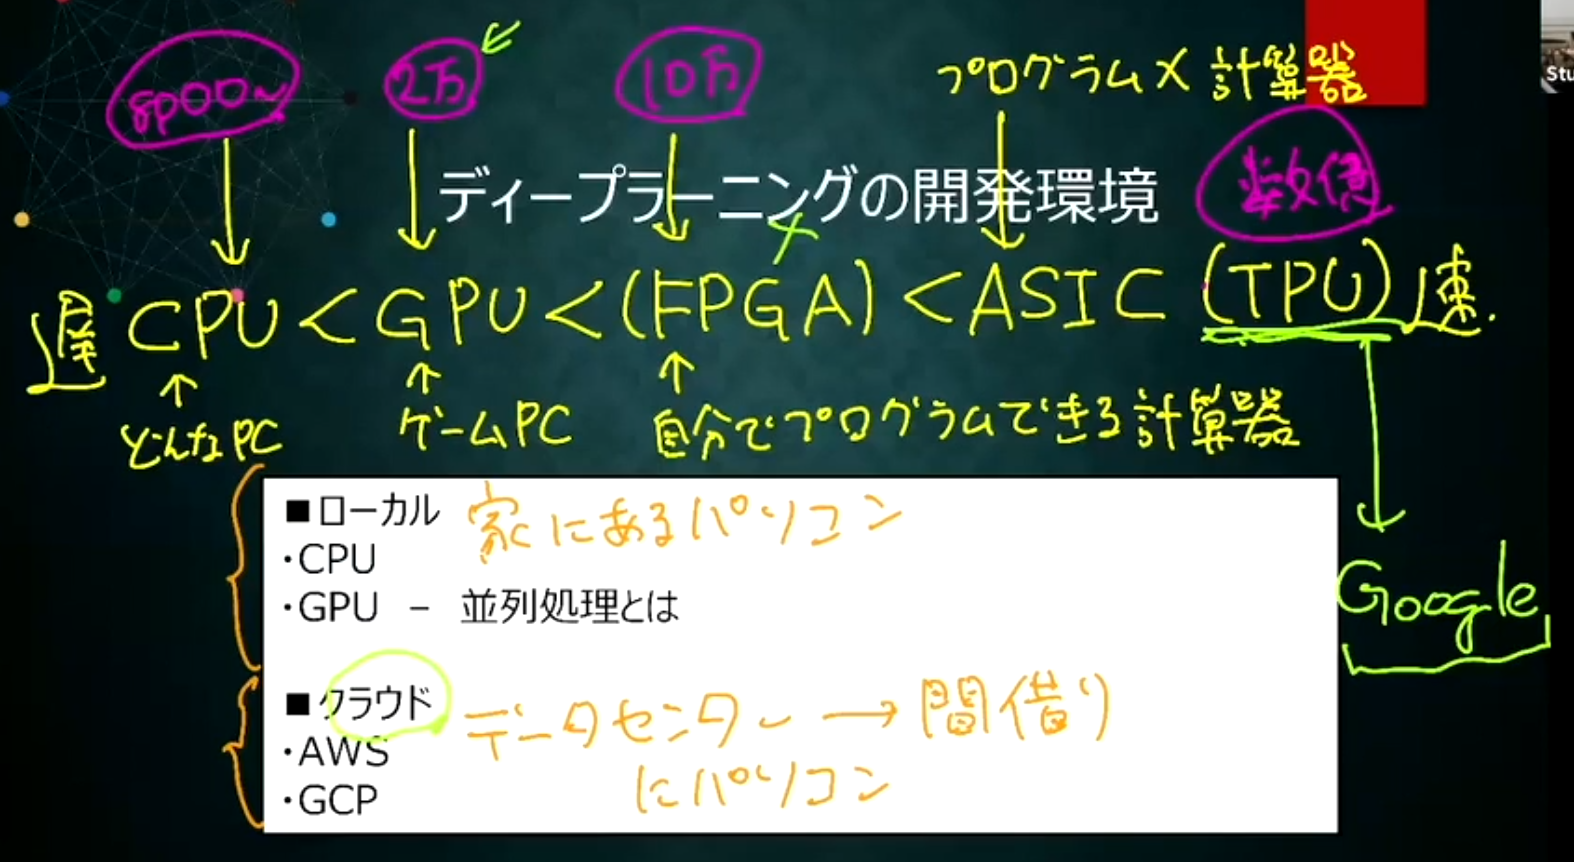 8000~ 2万 10万 プログラム×計算器
Stu
ディープラーニングの開発環境 数億
遅 CPU < GPU < (FPGA) < ASIC (TPU) 速.
どんなPC ゲームPC 自分でプログラムできる計算器
■ローカル 家にあるパソコン
・CPU
・GPU － 並列処理とは
Google
■クラウド データセンター → 間借り
・AWS にパソコン
・GCP